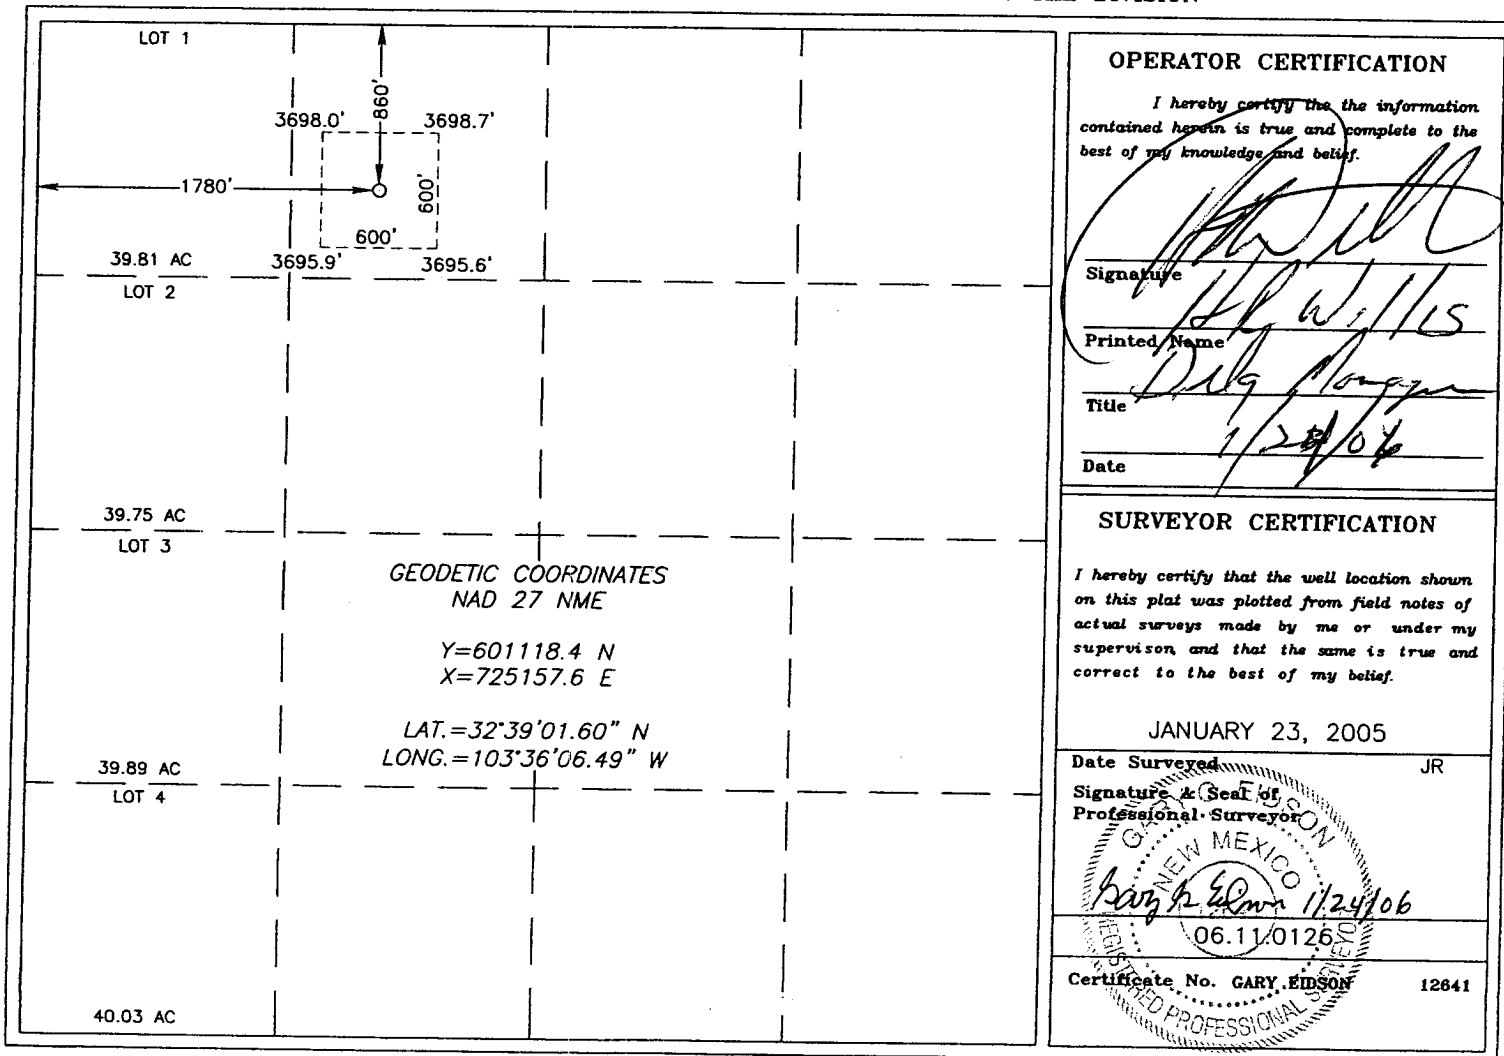 LOT 1
860'
3698.0' 3698.7'
1780'
600'
600'
39.81 AC 3695.9' 3695.6'
LOT 2
39.75 AC
LOT 3
GEODETIC COORDINATES
NAD 27 NME
Y=601118.4 N
X=725157.6 E
LAT.=32°39'01.60" N
LONG.=103°36'06.49" W
39.89 AC
LOT 4
40.03 AC
OPERATOR CERTIFICATION
I hereby certify the the information
contained herein is true and complete to the
best of my knowledge and belief.
Signature
Willis
Printed Name
Title
Date
SURVEYOR CERTIFICATION
I hereby certify that the well location shown
on this plat was plotted from field notes of
actual surveys made by me or under my
supervison, and that the same is true and
correct to the best of my belief.
JANUARY 23, 2005
Date Surveyed JR
Signature & Seal of
Professional Surveyor
GARY G. EIDSON
NEW MEXICO
1/24/06
06.11.0126
REGISTERED PROFESSIONAL SURVEYOR
Certificate No. GARY EIDSON 12641